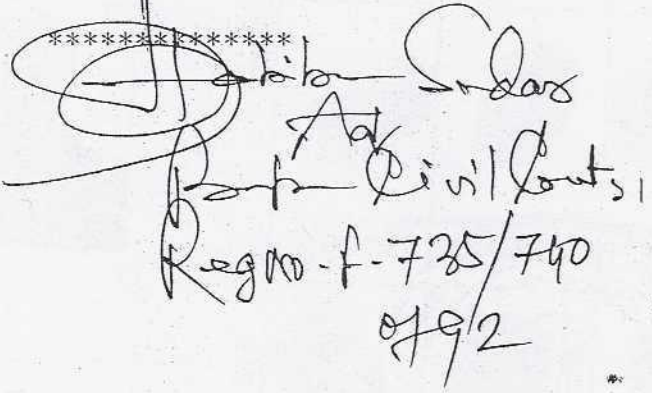 **************
Sardar
Adv
Civil Courts,
Regno-f-735/740
of 92